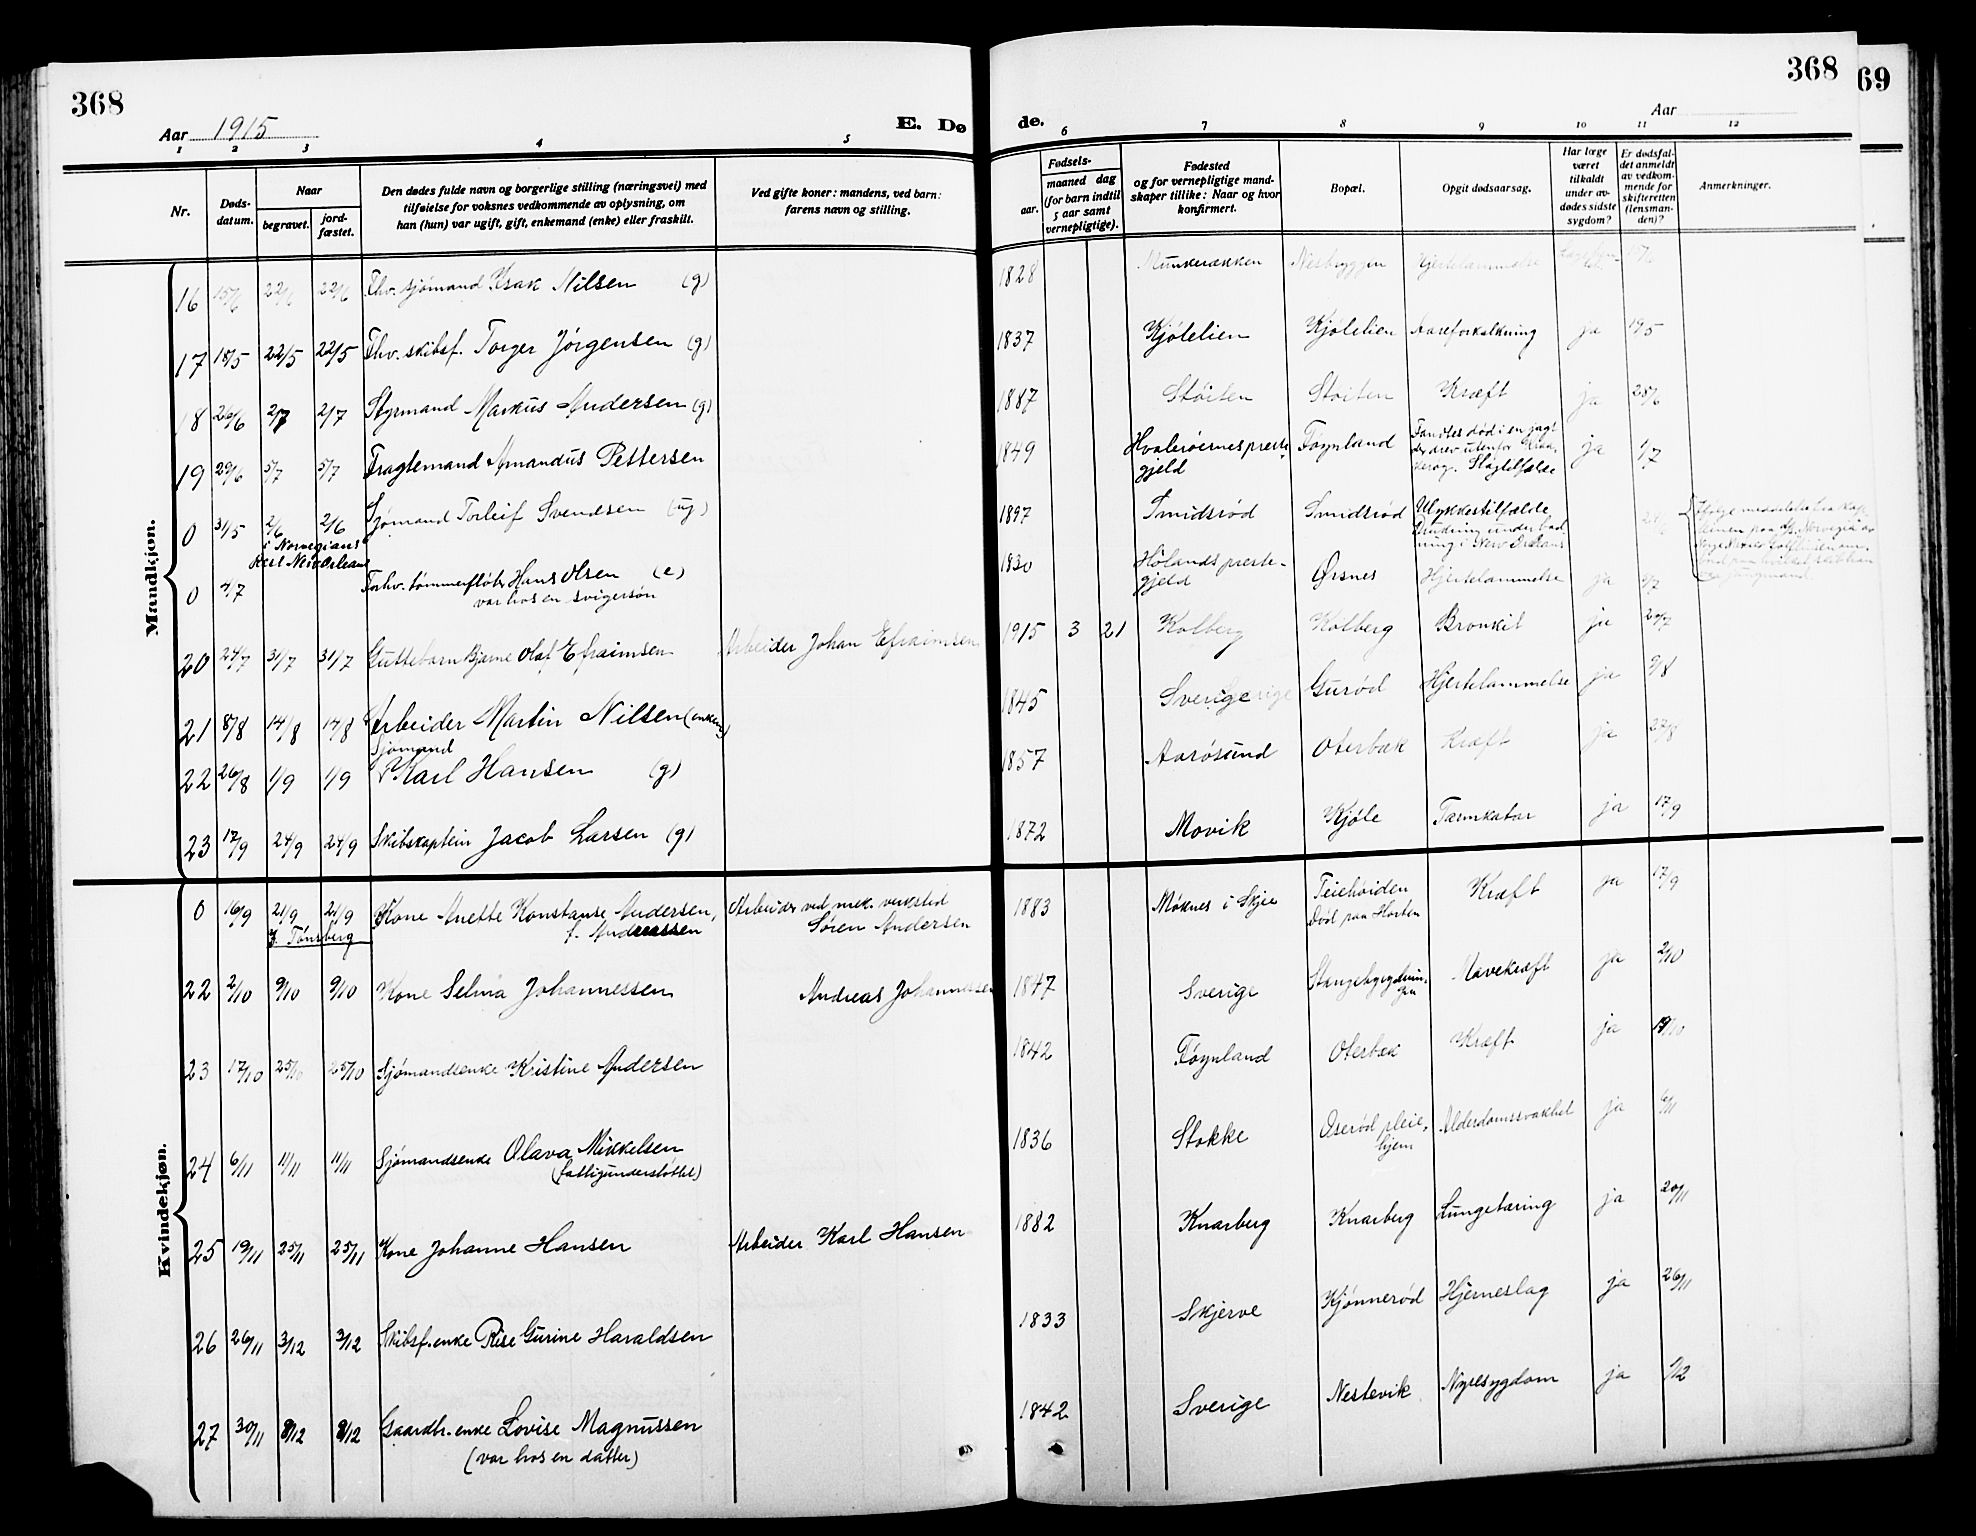 368
368
69
Aar 1915
E. Dø
de.
Aar
1 2 3 4 5 6 7 8 9 10 11 12
Nr.
Døds-
datum.
Naar
begravet.
jord-
fæstet.
Den dødes fulde navn og borgerlige stilling (næringsvei) med
tilføielse for voksnes vedkommende av oplysning, om
han (hun) var ugift, gift, enkemand (enke) eller fraskilt.
Ved gifte koner: mandens, ved barn:
farens navn og stilling.
Fødsels-
aar.
maaned dag
(for barn indtil
5 aar samt
vernepligtige).
Fødested
og for vernepligtige mand-
skaper tillike: Naar og hvor
konfirmert.
Bopæl.
Opgit dødsaarsag.
Har læge
været
tilkaldt
under av-
dødes sidste
sygdom?
Er dødsfal-
det anmeldt
av vedkom-
mende for
skifteretten
(lensman-
den)?
Anmerkninger.
Mandkjøn.
16 15/6 22/6 22/6 Fhv. sjømand Isak Nilsen (g) 1828 Munkerækken Nesbryggen Hjertelammelse
17 18/5 22/5 22/5 Fhv. skibsf. Torger Jørgensen (g) 1837 Kjølelien Kjølelien Aareforkalkning ja 19/5
18 26/6 2/7 2/7 Styrmand Markus Andersen (g) 1887 Støiten Støiten Kræft ja 28/6
19 29/6 5/7 5/7 Fragtemand Amandus Pettersen 1849 Hvaløernes preste-
gjeld Føynland Fandtes død i en jagt
der drev utenfor
Slagtilfælde ja 1/7
0 31/5 2/6 2/6 Sjømand Torleif Svendsen (ug) 1897 Smidsrød Smidsrød Ulykkestilfælde,
i Norwegians
Drukning under bad-
ning i New Orleans
0 2/7 Forhv. tømmerfløter Hans Olsen (e)
var hos en svigersøn 1830 Hølands preste-
gjeld Ørsnes Hjertelammelse ja 5/7
20 24/7 31/7 31/7 Guttebarn Bjarne Olaf Efraimsen Arbeider Johan Efraimsen 1915 3 21 Kolberg Kolberg Bronkit ja 24/7
21 8/8 14/8 14/8 Arbeider Martin Nilsen 1845 Sverige Gurød Hjertelammelse ja 9/8
Sjømand
22 26/8 1/9 1/9 Karl Hansen (g) 1857 Aarøsund Oterbæk Kræft ja 27/8
23 17/9 24/9 24/9 Skibskaptein Jacob Larsen (g) 1872 Movik Kjøle Tarmkatar ja 17/9
Kvindekjøn.
0 16/9 21/9 21/9 Kone Anette Konstanse Andersen, Arbeider ved mek. verksted 1883 Møknes i Skjee Teiehøiden Kræft ja 17/9
Tønsberg f. Andreassen Søren Andersen Død paa Horten
22 2/10 9/10 9/10 Kone Selma Johannessen Andreas Johannessen 1847 Sverige Mavekræft ja 2/10
23 17/10 25/10 25/10 Sjømandsenke Kristine Andersen 1842 Føynland Oterbæk Kræft ja 19/10
24 6/11 11/11 11/11 Sjømandsenke Olava Mikkelsen 1836 Stokke Oserød pleie-
hjem Alderdomssvakhet ja 6/11
(fattigunderstøttet)
25 19/11 25/11 25/11 Kone Johanne Hansen Arbeider Karl Hansen 1882 Knarberg Knarberg Lungetæring ja 20/11
26 26/11 3/12 3/12 Skibsf. enke Rise Gurine Haraldsen 1833 Skjerve Kjønnerød Hjerneslag ja 26/11
27 30/11 8/12 8/12 Gaardbr. enke Lovise Magnussen 1842 Sverige Nestevik Nyresygdom ja 1/12
(var hos en datter)